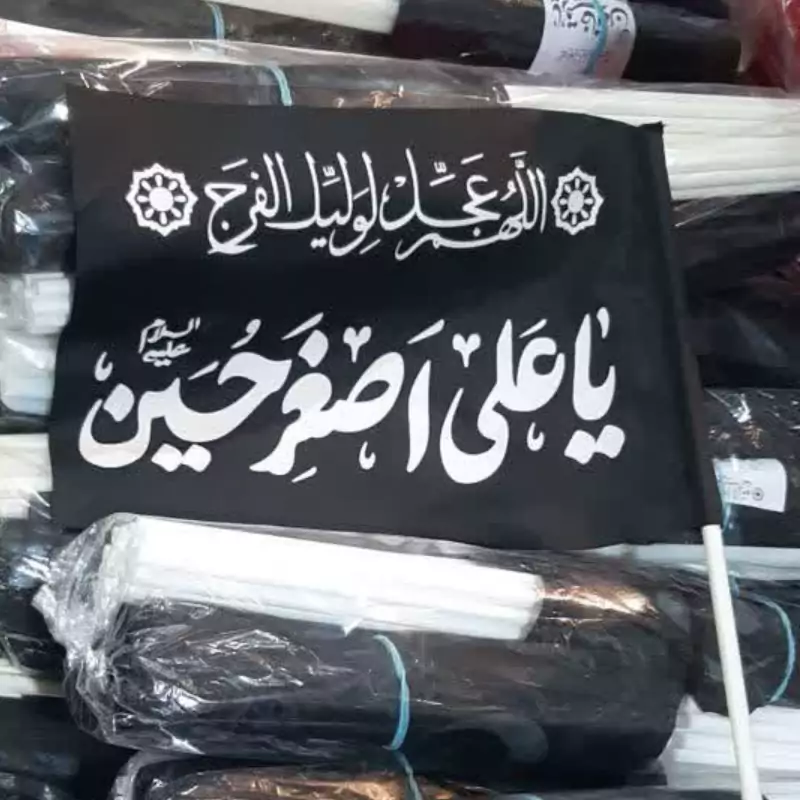 اللّهُم عَجِّل لِوَلیِّکَ الفَرَجَ
یا عَلی اَصغَرِ حُسَین
علیه السلام